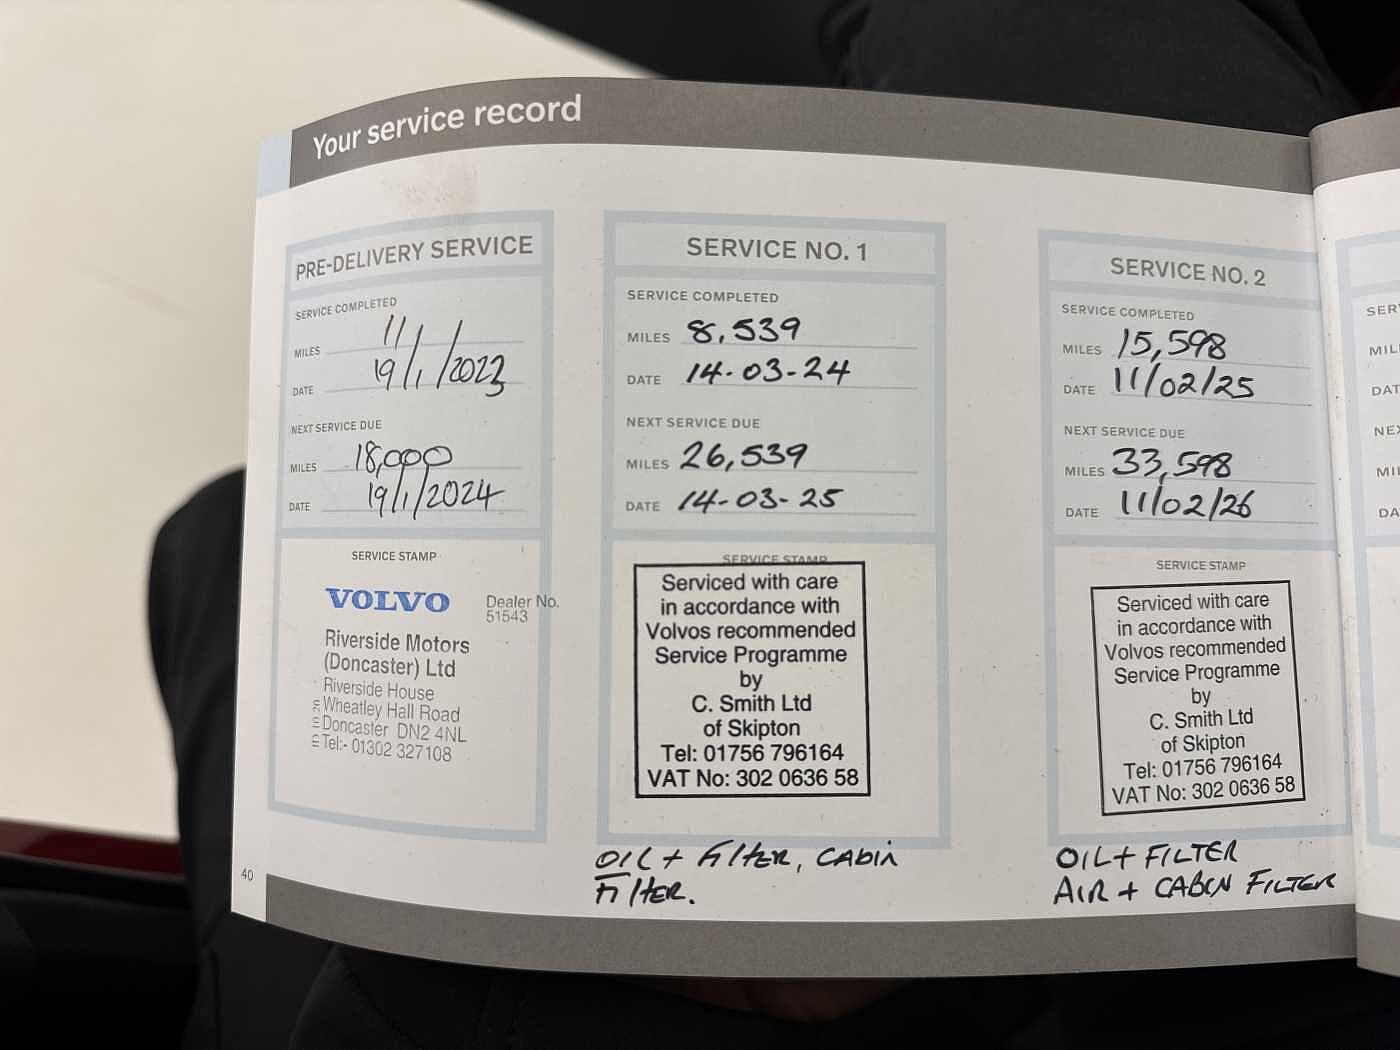 Your service record
PRE-DELIVERY SERVICE
SERVICE COMPLETED
MILES 11
DATE 19/1/2023
NEXT SERVICE DUE
MILES 18,000
DATE 19/1/2024
SERVICE STAMP
VOLVO
Dealer No.
51543
Riverside Motors
(Doncaster) Ltd
Riverside House
Wheatley Hall Road
Doncaster DN2 4NL
Tel:- 01302 327108
40
SERVICE NO. 1
SERVICE COMPLETED
MILES 8,539
DATE 14-03-24
NEXT SERVICE DUE
MILES 26,539
DATE 14-03-25
SERVICE STAMP
Serviced with care
in accordance with
Volvos recommended
Service Programme
by
C. Smith Ltd
of Skipton
Tel: 01756 796164
VAT No: 302 0636 58
OIL + FilTER, CABIN
FilTER.
SERVICE NO. 2
SERVICE COMPLETED
MILES 15,598
DATE 11/02/25
NEXT SERVICE DUE
MILES 33,598
DATE 11/02/26
SERVICE STAMP
Serviced with care
in accordance with
Volvos recommended
Service Programme
by
C. Smith Ltd
of Skipton
Tel: 01756 796164
VAT No: 302 0636 58
OIL + FILTER
AIR + CABIN FILTER